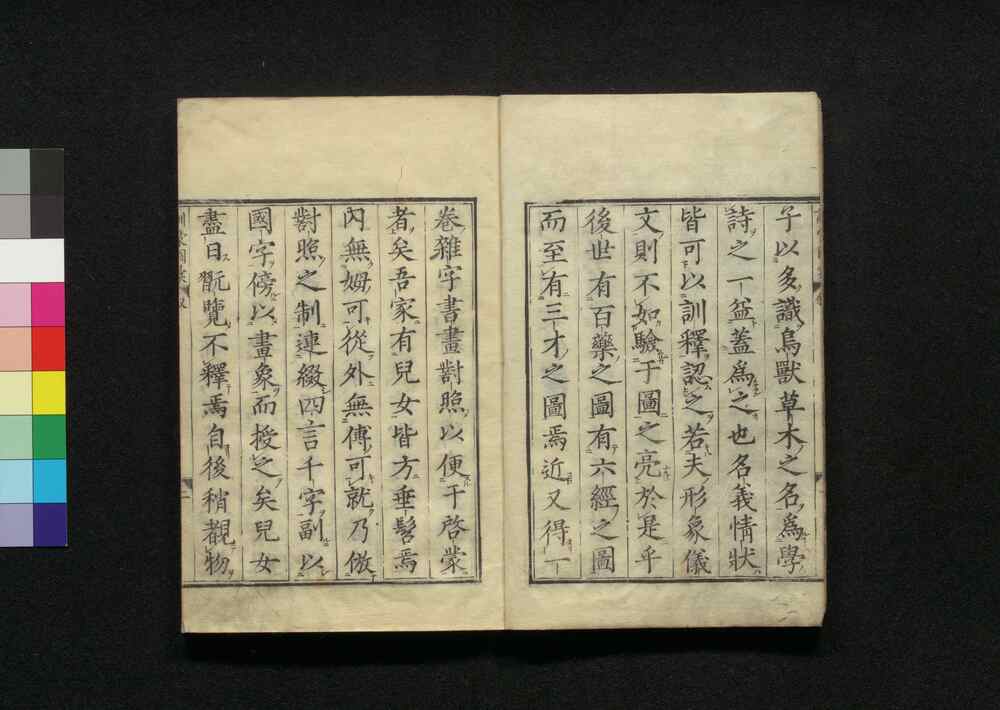 子以多識鳥獸草木之名爲學
詩之一益蓋爲之也名義情狀
皆可以訓釋認之若夫形象儀
文則不如驗于圖之亮於是乎
後世有百藥之圖有六經之圖
而至有三才之圖焉近又得一
卷雜字書畫對照以便于啓蒙
者矣吾家有兒女皆方垂髫焉
內無姆可從外無傅可就乃倣
對照之制連綴四言千字副以
國字傍以畫象而授之矣兒女
盡日翫覽不釋焉自後稍覩物